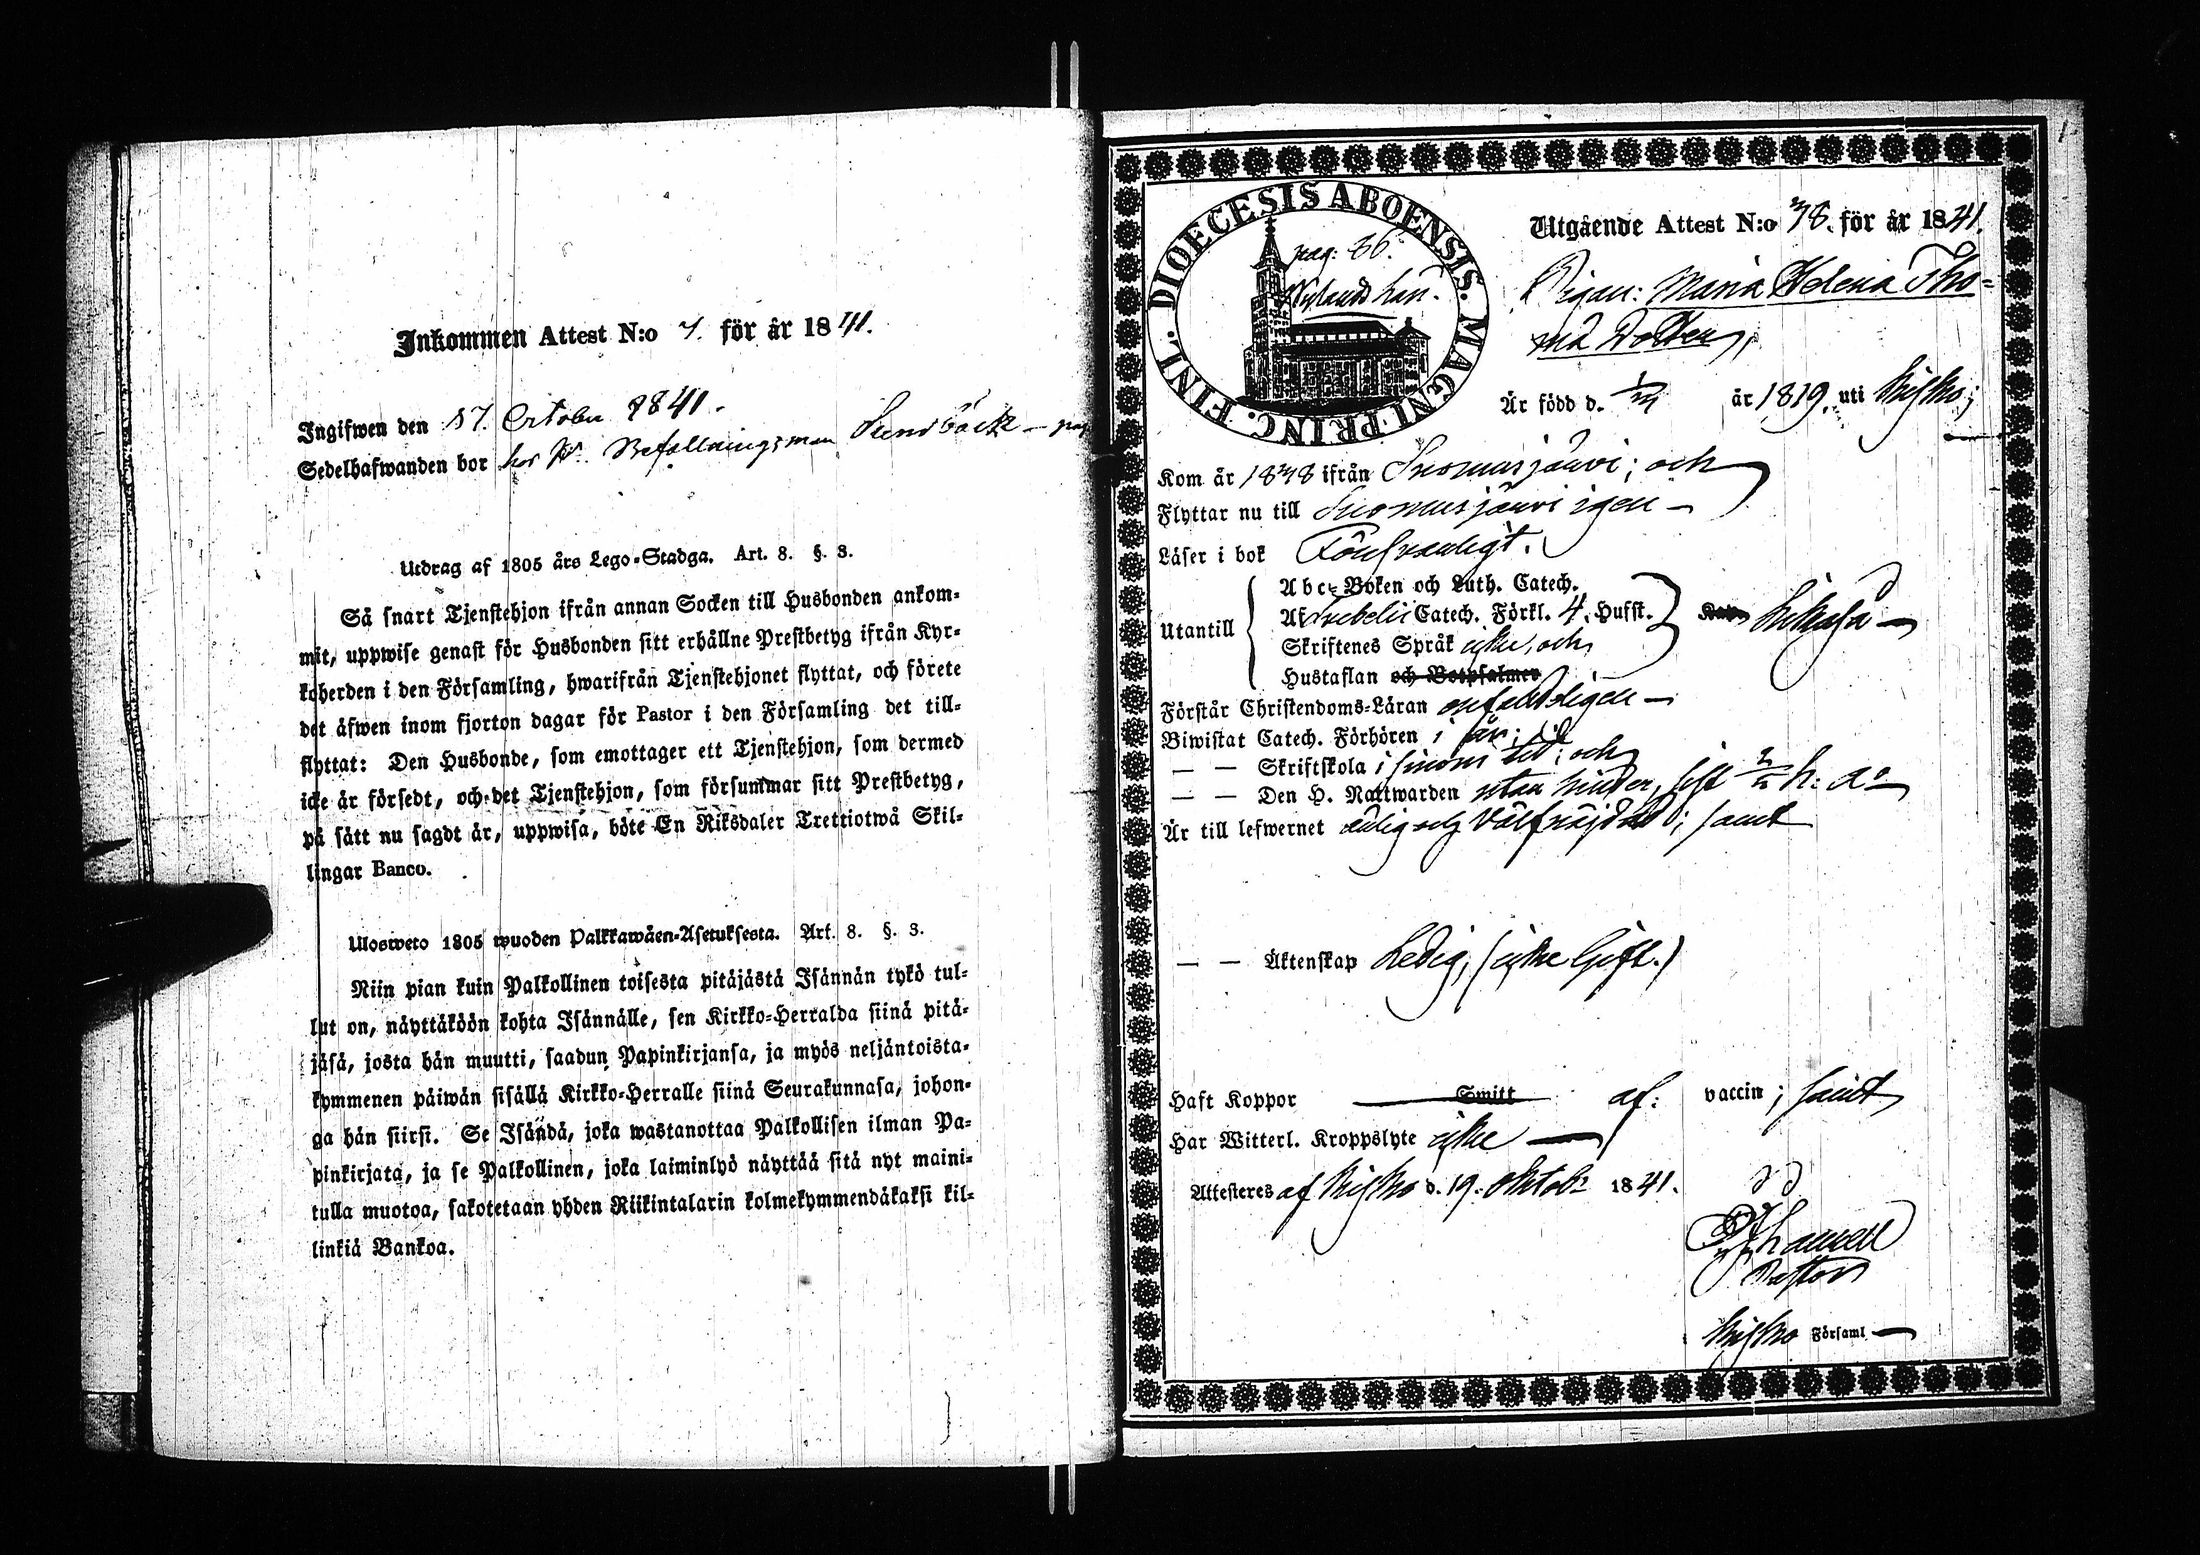 Inkommen Attest N:o 7. för år 1841.
Ingifwen den 17. October 1841.
Sedelhafwanden bor hos Befallningsman Sundbäck - pag
Utdrag af 1805 års Lego-Stadga. Art. 8. §. 3.
Så snart Tjenstehjon ifrån annan Socken till Husbonden ankom-
mit, uppwise genast för Husbonden sitt erhållne Prestbetyg ifrån Kyr-
koherden i den Församling, hwarifrån Tjenstehjonet flyttat, och förete
det äfwen inom fjorton dagar för Pastor i den Församling det till-
flyttat: Den Husbonde, som emottager ett Tjenstehjon, som dermed
icke är försedt, och det Tjenstehjon, som försummar sitt Prestbetyg,
på sätt nu sagdt är, uppwisa, böte En Riksdaler Trettiotwå Skil-
lingar Banco.
Ulosweto 1805 wuoden Palkkawäen-Asetuksesta. Art. 8. §. 3.
Niin pian kuin Palkollinen toisesta pitäjästä Isännän tykö tul-
lut on, näyttäköön kohta Isännälle, sen Kirkko-Herralda siinä pitä-
jäsä, josta hän muutti, saadun Papinkirjansa, ja myös neljäntoista-
kymmenen päiwän sisällä Kirkko-Herralle siinä Seurakunnasa, johon-
ga hän siirsi. Se Isändä, joka wastanottaa Palkollisen ilman Pa-
pinkirjata, ja se Palkollinen, joka laiminlyö näyttää sitä nyt maini-
tulla muotoa, sakotetaan yhden Riikintalarin kolmekymmendäkaksi kil-
linkiä Bankoa.
1
DIOECESIS ABOENSIS. MAGNI PRINC. FINL.
pag: 36.
Nylands län.
Utgående Attest N:o 38. för år 1841.
Pigan: Maria Helena Tho-
mä Dotter,
Är född d. år 1819, uti Kisko;
Kom år 1838 ifrån Suomusjärvi; och
Flyttar nu till Suomusjärvi igen -
Läser i bok Försvarligt.
Utantill
Abc-Boken och Luth. Catech.
Af Svebelii Catech. Förkl. 4. Hufst.
Skriftenes Språk icke, och
Hustaflan och Botpsalmer
likaså -
Förstår Christendoms-Läran enfaldigen -
Biwistat Catech. Förhören i år;
— — Skriftskola i sinom tid; och
— — Den H. Nattwarden utan hinder, sist h: a:
Är till lefwernet ärlig och välfräjdad; samt
— — Äktenskap Ledig, (icke Gift.)
Haft Koppor Smitt af: vaccin; samt
Har Witterl. Kroppslyte icke —
Attesteres af Kisko d. 19. Oktob: 1841.
Pastor
Kisko Församl —